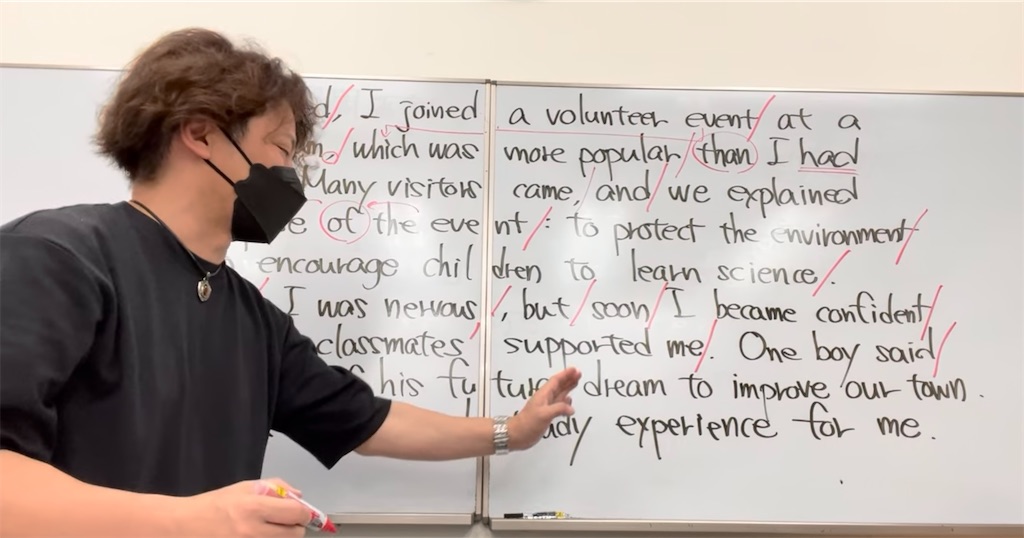 I joined a volunteer event at a
which was more popular than I had
Many visitors came, and we explained
of the event : to protect the environment
encourage children to learn science.
I was nervous, but soon I became confident
classmates supported me. One boy said
his future dream to improve our town.
experience for me.